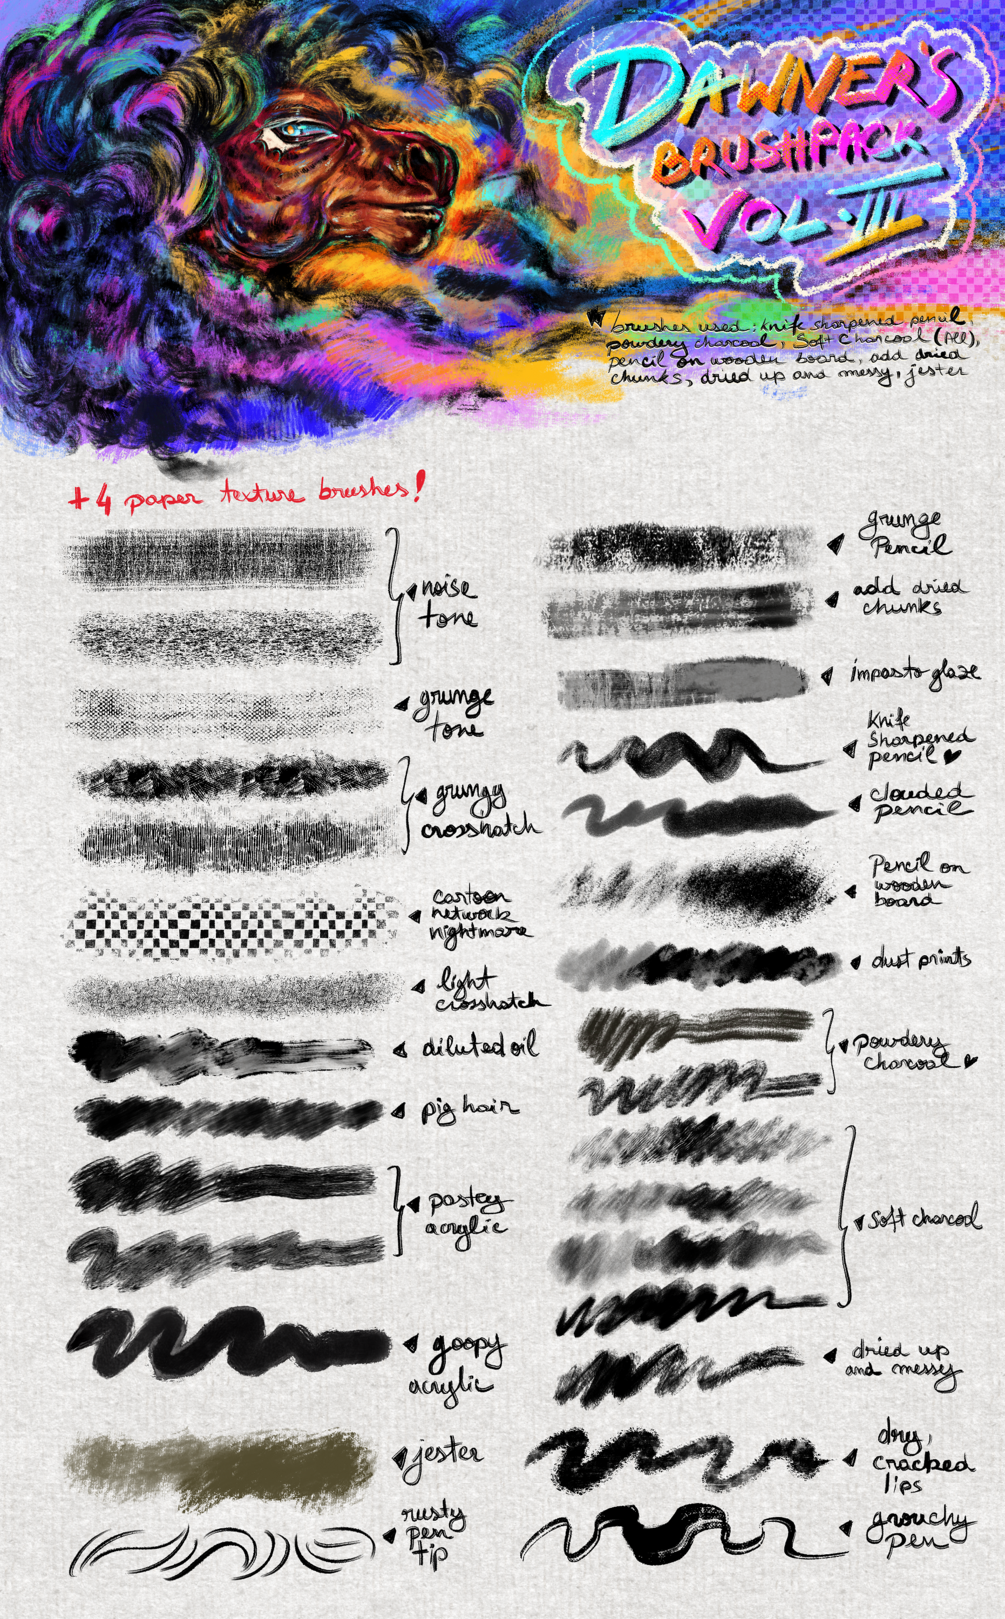 DAWNER'S
BRUSHPACK
VOL·III
brushes used: knife sharpened pencil,
powdery charcoal, Soft Charcoal (All),
pencil on wooden board, add dried
chunks, dried up and messy, jester
+4 paper texture brushes!
noise
tone
grunge
tone
grungy
crosshatch
cartoon
network
nightmare
light
crosshatch
diluted oil
pig hair
pastey
acrylic
goopy
acrylic
jester
rusty
pen
tip
grunge
Pencil
add dried
chunks
impasto glaze
Knife
Sharpened
pencil
clouded
pencil
Pencil on
wooden
board
dust prints
powdery
charcoal
Soft charcoal
dried up
and messy
dry,
cracked
lips
grouchy
pen